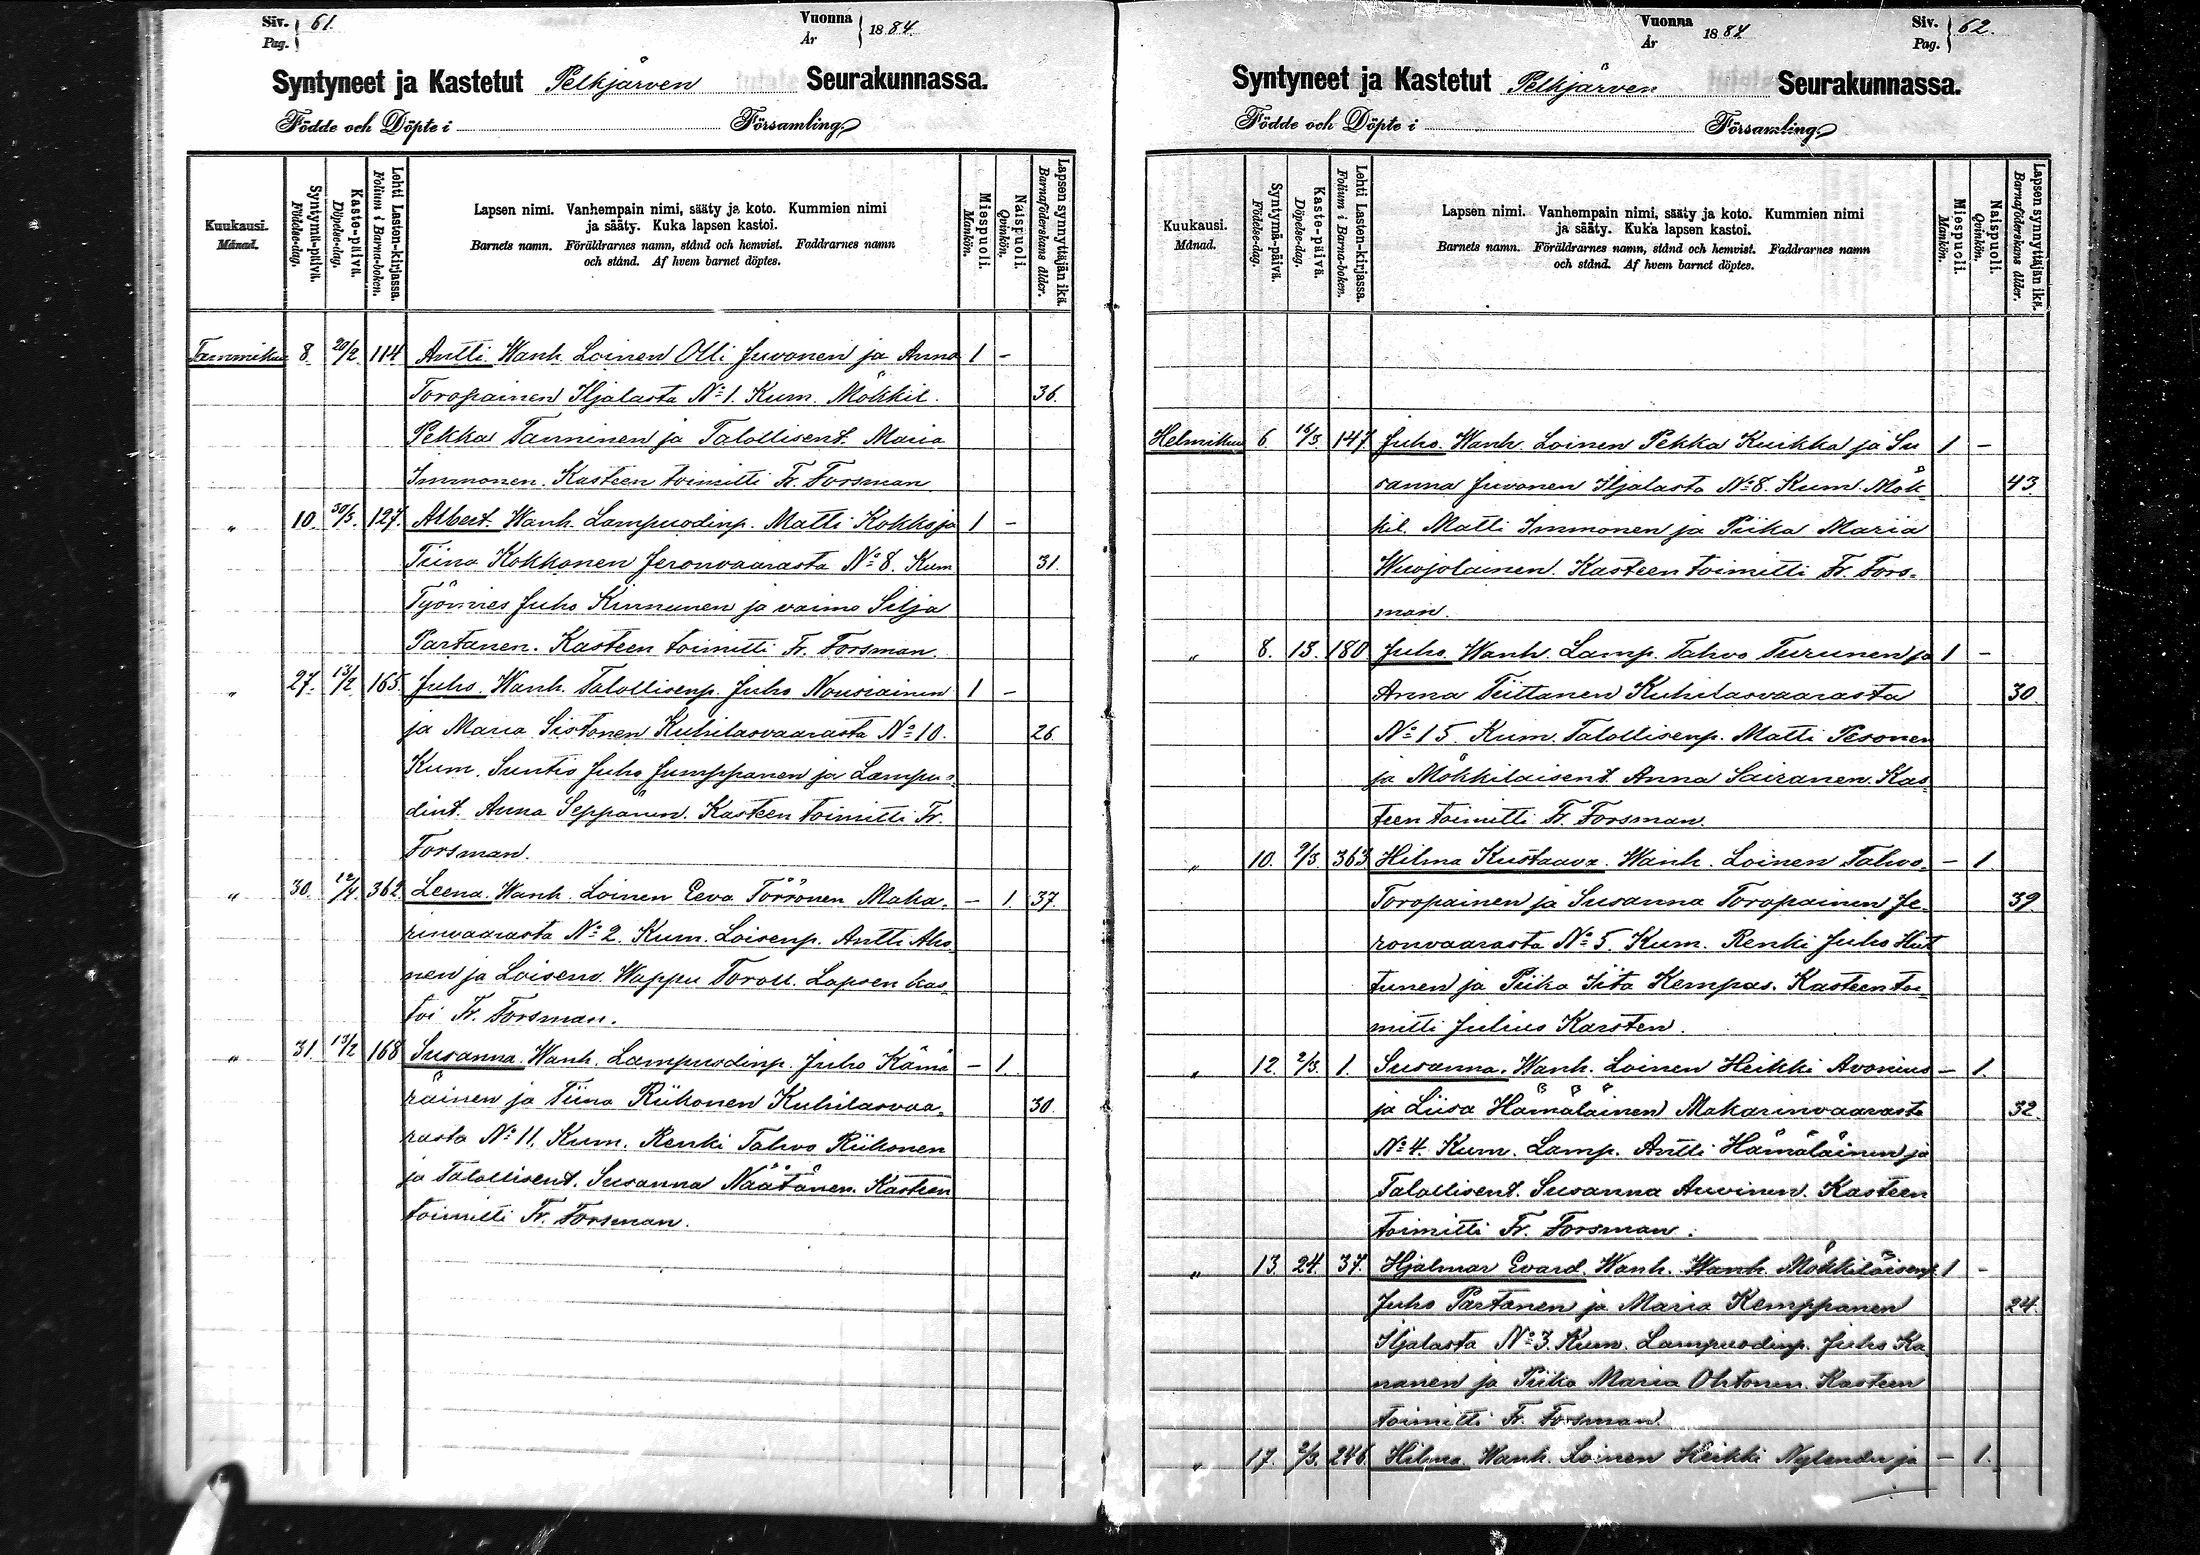 Siv. Pag. 61. Vuonna År 1884.
Syntyneet ja Kastetut Pelkjärven Seurakunnassa.
Födde och Döpte i Församling.
Kuukausi. Månad.
Syntymä-päivä. Födelse-dag.
Kaste-päivä. Döpelse-dag.
Lehti Lasten-kirjassa. Folium i Barna-boken.
Lapsen nimi. Vanhempain nimi, sääty ja koto. Kummien nimi
ja sääty. Kuka lapsen kastoi.
Barnets namn. Föräldrarnes namn, stånd och hemvist. Faddrarnes namn
och stånd. Af hvem barnet döptes.
Miespuoli. Mankön.
Naispuoli. Qvinkön.
Lapsen synnyttäjän ikä. Barnaföderskans ålder.
Tammikuu 8. 20/2 114 Antti. Wanh. Loinen Olli Juvonen ja Anna 1 -
Toropainen Iljalasta No 1. Kum. Mökkil. 36.
Pekka Tanninen ja Talollisent. Maria
Immonen. Kasteen toimitti Fr. Forsman.
" 10. 30/3 127. Albert. Wanh. Lampuodinp. Matti Kokko ja 1 -
Tiina Kokkonen Jeronvaarasta No 8. Kum 31.
Työmies Juho Kinnunen ja vaimo Silja
Partanen. Kasteen toimitti Fr. Forsman.
" 27. 13/2 165. Juho. Wanh. Talollisenp. Juho Nousiainen 1 -
ja Maria Sistonen Kuhilasvaarasta No 10. 26
Kum. Suntio Juho Jumppanen ja Lampu-
dint. Anna Seppänen. Kasteen toimitti Fr.
Forsman.
" 30. 12/4 362. Leena. Wanh. Loinen Eeva Törrönen Maka- - 1. 37.
rinvaarasta No 2. Kum. Loisenp. Antti Aho-
nen ja Loisenv. Wappu Toroll. Lapsen kas-
toi Fr. Forsman.
" 31. 13/2 168 Susanna. Wanh. Lampuodinp. Juho Kämä- - 1.
räinen ja Tiina Riikonen Kuhilasvaa- 30.
rasta No 11. Kum. Renki Tahvo Riikonen
ja Talollisent. Susanna Näätänen. Kasteen
toimitti Fr. Forsman.
Vuonna År 1884 Siv. Pag. 62.
Syntyneet ja Kastetut Pelkjärven Seurakunnassa.
Födde och Döpte i Församling.
Kuukausi. Månad.
Syntymä-päivä. Födelse-dag.
Kaste-päivä. Döpelse-dag.
Lehti Lasten-kirjassa. Folium i Barna-boken.
Lapsen nimi. Vanhempain nimi, sääty ja koto. Kummien nimi
ja sääty. Kuka lapsen kastoi.
Barnets namn. Föräldrarnes namn, stånd och hemvist. Faddrarnes namn
och stånd. Af hvem barnet döptes.
Miespuoli. Mankön.
Naispuoli. Qvinkön.
Lapsen synnyttäjän ikä. Barnaföderskans ålder.
Helmikuu 6 16/3 147. Juho. Wanh. Loinen Pekka Kuikka ja Su 1 -
sanna Juvonen Iljalasta No 8. Kum. Mök- 43.
kil. Matti Immonen ja Piika Maria
Wuojolainen. Kasteen toimitti Fr. Fors-
man.
" 8. 13. 180 Juho. Wanh. Lamp. Tahvo Turunen ja 1 -
Anna Tiittanen Kuhilasvaarasta 30.
No 15. Kum. Talollisenp. Matti Pesonen
ja Mökkiläisent. Anna Sairanen. Kas-
teen toimitti Fr. Forsman.
" 10. 9/3 363 Hilma Kustaava. Wanh. Loinen Tahvo - 1.
Toropainen ja Susanna Toropainen Je- 39.
ronvaarasta No 5. Kum. Renki Juho Hut
tunen ja Piika Iita Kempas. Kasteen toi-
mitti Julius Karsten.
" 12. 2/3. 1. Susanna. Wanh. Loinen Heikki Avonius - 1.
ja Liisa Hämäläinen Makarinvaarasta 32.
No 4. Kum. Lamp. Antti Hämäläinen ja
Talollisent. Susanna Auvinen. Kasteen
toimitti Fr. Forsman.
" 13. 24. 37. Hjalmar Evard. Wanh. Wanh. Mökkiläisenp. 1 -
Juho Partanen ja Maria Kemppanen 24.
Iljalasta No 3. Kum. Lampuodinp. Juho Ka-
nanen ja Piika Maria Ohtonen. Kasteen
toimitti Fr. Forsman
" 17. 2/3. 246. Hilma. Wanh. Loinen Heikki Nylender ja - 1.